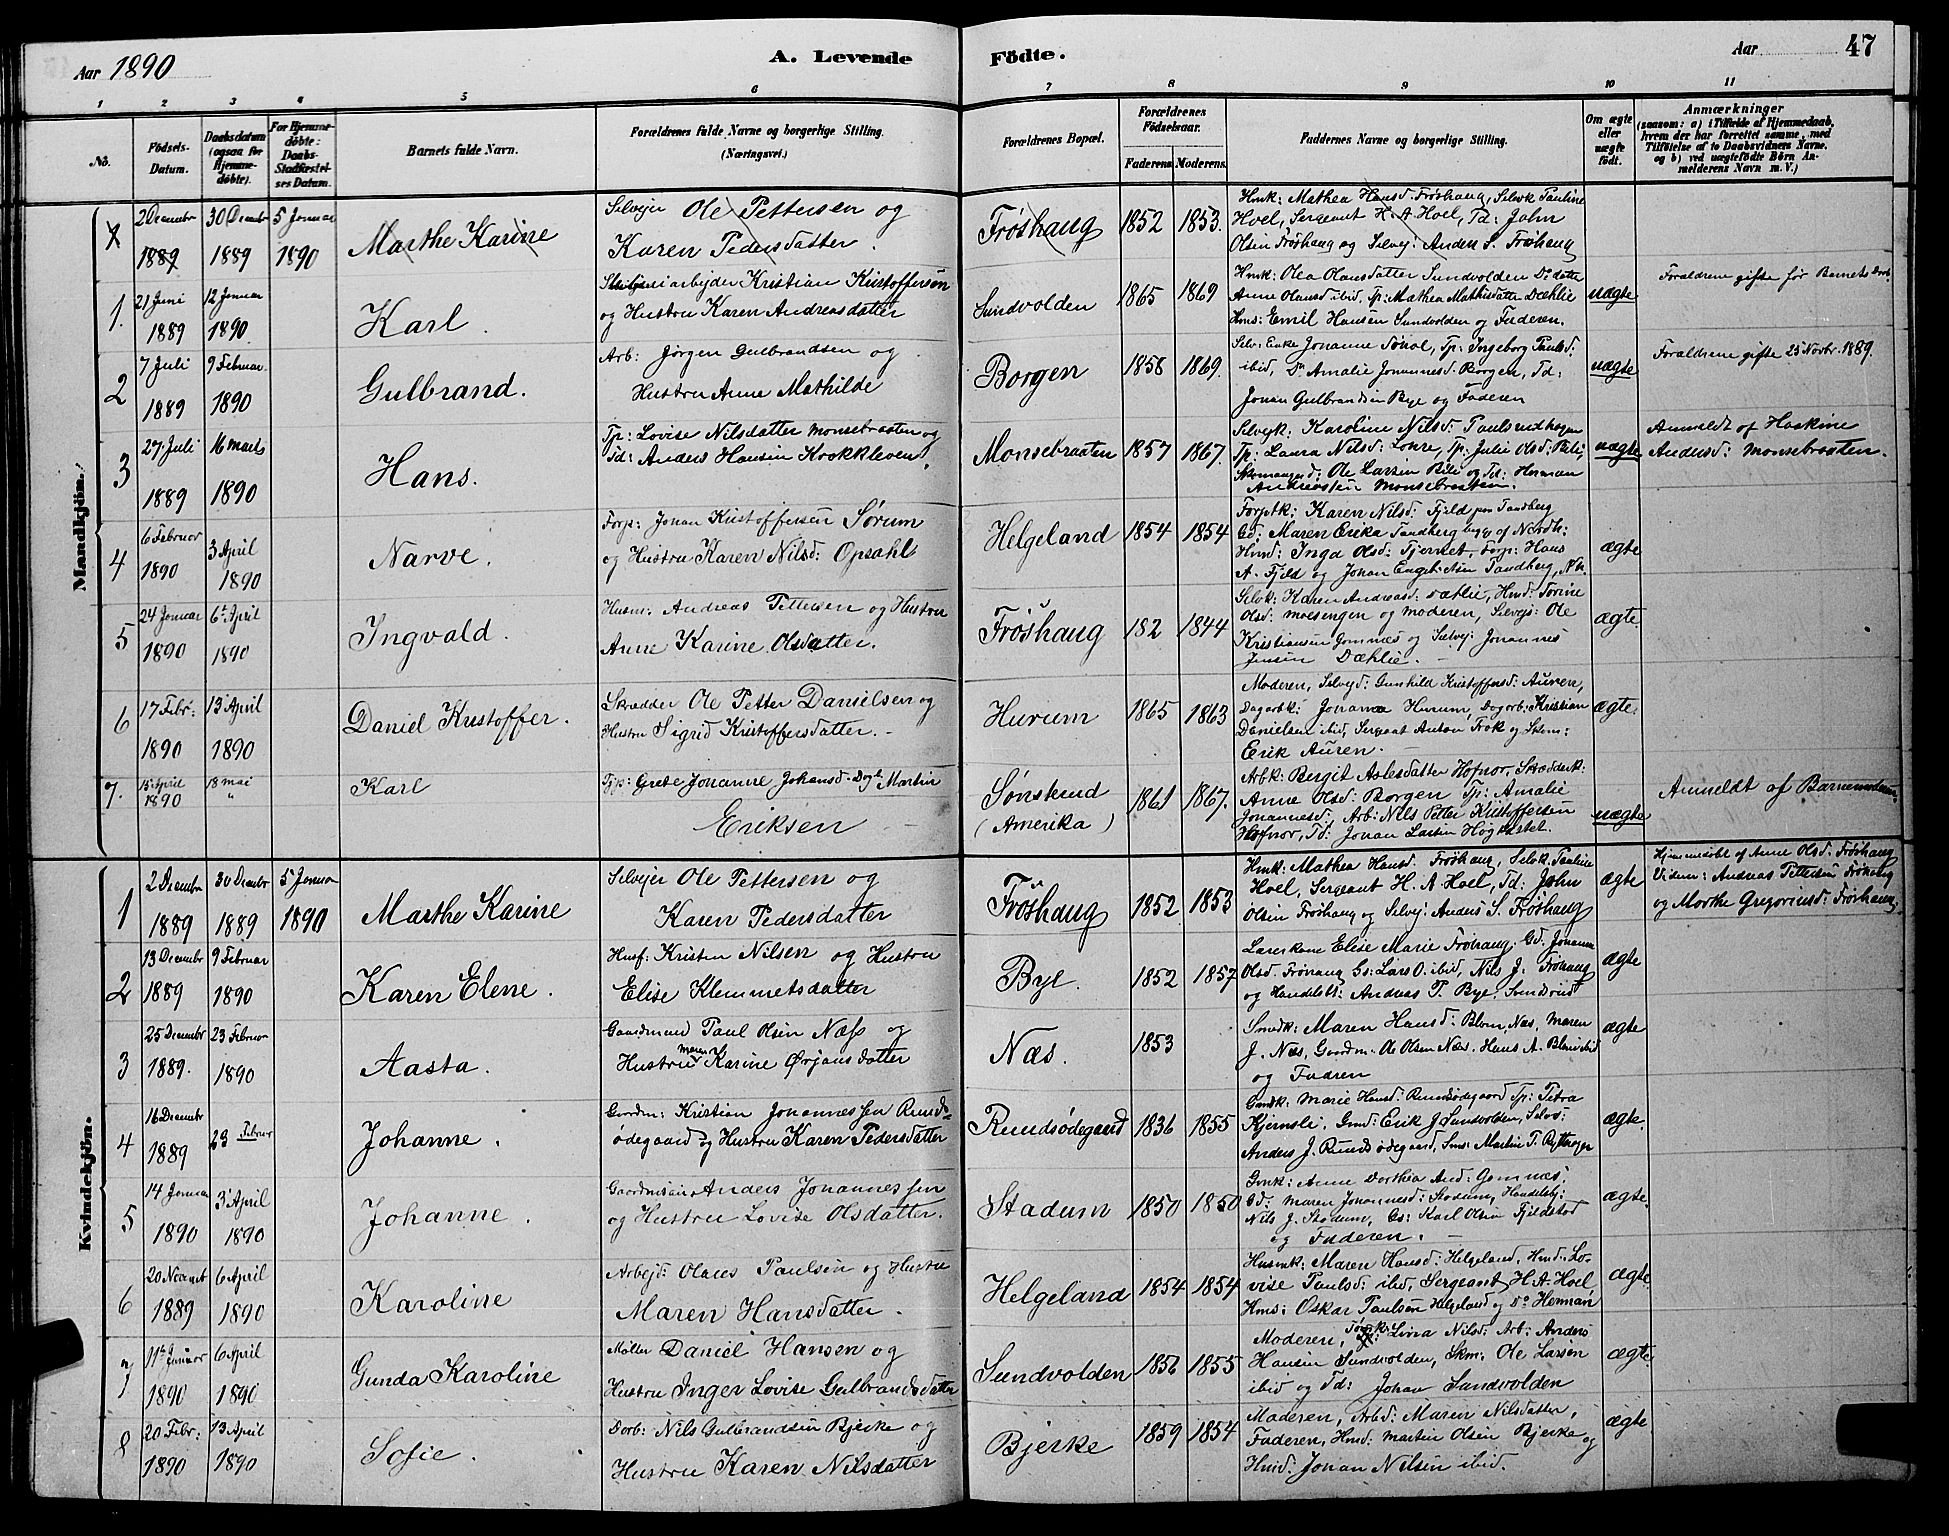 Aar 1890
A. Levende
Födte.
Aar 47
1 2 3 4 5 6 7 8 9 10 11
No.
Födsels-Datum.
Daabsdatum (ogsaa for Hjemmedöbte).
For Hjemmedöbte: Daabs-Stadfæstelses Datum.
Barnets fulde Navn.
Forældrenes fulde Navne og borgerlige Stilling.
(Næringsvei.)
Forældrenes Bopæl.
Forældrenes Födselsaar.
Faderens. Moderens.
Faddernes Navne og borgerlige Stilling.
Om ægte eller uægte födt.
Anmærkninger
(saasom: a) i Tilfælde af Hjemmedaab, hvem der har forrettet samme, med Tilföielse af to Daabsvidners Navne, og b) ved uægtefödte Börn Anmelderens Navn m. V.)
Mandkjön.
1 2 Decembr 1889 30 Decembr 1889 5 Januar 1890
Marthe Karine
Selvejer Ole Pettersen og
Karen Pedersdatter.
Frøshaug 1852 1853.
Hmk: Mathea Hansd. Frøshaug, Selvk Pauline
Hoel, Sergeant H. A Hoel, Td: John
Olsen Frøshaug og Selvej: Anders S. Frøshaug
1. 21 Juni 1889 12 Januar 1890
Karl.
arbejder Kristian Kristoffersen
og Hustru Karen Andreasdatter
Sundvolden 1865 1869
Hmk: Olea Olausdatter Sundvolden Do datte
Anne Olausd: ibid, Tp: Mathea Mathisdatter Dæhlie
Hms: Emil Hansen Sundvolden og Faderen.
uægte
Foraldrene gifte før Barnets Daab
2 7 Juli 1889 9 Februar 1890
Gulbrand.
Arb: Jørgen Gulbrandsen og
Hustru Anne Mathilde
Borgen 1858 1869.
Selv: Enke Johanne Sønol, Tp: Ingeborg Paulsd:
ibid, Do Amalie Johannesd: Borgen, Td:
Johan Gulbrandsen Bye og Faderen
uægte
Foraldrene gifte 25 Novbr. 1889.
3 27 Juli 1889 16 marts 1890
Hans.
Tp: Lovise Nilsdatter Monsebraaten og
Td: Anders Hansen Krokkleven.
Monsebraaten 1857 1867.
Selvejk: Karoline Nilsd: Paulsrudhagen
Tp: Laura Nilsd: Lohre, Tp: Julie Olsd: Pili,
Skomagersd: Ole Larsen Pili og Td: Herman
Andreassen Monsebraaten.
uægte
Anmeldt af Haakine
Andersd: Monsebraaten.
4 6 Februar 1890 3 April 1890
Narve.
Forp: Johan Kristoffersen Sørum
og Hustru Karen Nilsd: Opsahl
Helgeland 1854 1854
Forptk: Karen Nilsd: Fjeld paa Tandberg
Gd: Maren Erika Tandberg begge af Nordh:
Hmd: Inga Olsd: Tjernet, Forp: Hans
A. Fjeld og Johan Engebretsen Tandberg, Nh.
ægte
5 24 Januar 1890 6te April 1890
Ingvald.
Husm: Andreas Pettersen og Hustru
Anne Karine Olsdatter.
Frøshaug 182 1844
Selvk: Karen Andreasd: Dæhlie, Hmd: Torine
Olsd: Moesengen og Moderen, Selvejs: Ole
Kristiansen Gomnæs og Selvej: Johannes
Jensen Dæhlie.
ægte.
6 17 Febr: 1890 13 April 1890
Daniel Kristoffer.
Skrædder Ole Petter Danielsen og
Hustru Sigrid Kristoffersdatter.
Hurum 1865 1863
Moderen, Selvejd: Gunhild Kristoffersd: Auren,
Dagarbk: Johana Hurum, Dagarb: Kristian
Danielsen ibid, Sergeant Anton Frok og Skom:
Erik Auren.
ægte.
7. 15 April 1890 18 mai "
Karl
Tjp: Grete Johanne Johansd. Dagl: Martin
Eriksen
Sønsterud
(Amerika) 1861 1867.
Arbk: Bergit Aslesdatter Hofnor, Skrædderk:
Anne Olsd: Borgen Tp: Amalie
Johannesd:, Arb: Nils Petter Kristoffersen
Hofnor, Td: Johan Larsen Høgkastet.
uægte
Anmeldt af Barnemoderen.
Kvindekjön.
1 2 Decembr 1889 30 Decembr 1889 5 Januar 1890
Marthe Karine
Selvejer Ole Pettersen og
Karen Pedersdatter
Frøshaug 1852 1853
Hmk: Mathea Hansd. Frøshaug, Selvk. Pauline
Hoel, Sergeant H. A Hoel, Td: John
Olsen Frøshaug og Selvej: Anders S. Frøshaug
ægte
Hjemmedøbt af Anne Olsd: Frøshaug
Vidner: Andreas Pettersen Frøshaug
og Marthe Gregoriusd: Frøshaug
2 13 Decembr 1889 9 Februar 1890
Karen Elene.
Husf: Kristen Nilsen og Hustru
Elise Klemmetsdatter
Bye. 1852 1857
Lærerkone Elise Marie Frøhaug, Gd. Johanne
Olsd. Frøhaug Gs: Lars O. ibid, Nils J. Frøhaug
og Handelsb: Andreas T. Bye, Svendsrud
ægte
3 25 Decembr 1889. 23 Februar 1890
Aasta.
Gaardmand Paul Olsen Næss og
Hustru Maren Karine Ørjansdatter
Næs. 1853
Smedk: Maren Hansd: Blom, Næs, Maren
J. Næs, Gaardm. Ole Olsen Næs. Hans A. Blom ibid
og Fadren
ægte
4 16 Decembr 1889 23 Februar
Johanne.
Gaardm: Kristian Johannessen Runds-
ødegaard og Hustru Karen Pedersdatter
Rundsødegaard 1836 1855
Gmdk: Marie Hansd: Rundsødegaard Tp: Petra
Kjernsli, Gmd: Erik J Sundvolden, Selvs:
Anders J. Rundsødegaard, Sms: Martin P. Rytterager
ægte.
5 14 Januar 1890 3 April 1890
Johanne.
Gaardmand Anders Johannessen
og Hustru Lovise Olsdatter.
Stadum 1850 1850
Gmk: Anne Dorthea And: Gomnæs,
Gd: Maren Johannesd: Stadum, Handelsbj:
Nils J. Stadum, Gs: Karl Olsen Fjeldstad
og Faderen.
ægte.
6 20 Novembr 1889 6 April 1890
Karoline
Arbejd: Olaves Paulsen og Hustru
Maren Hansdatter.
Helgeland 1854 1854
Husmk: Maren Hansd: Helgeland, Hmd: Lo-
vise Paulsd: ibid, Sergeant H. A. Hoel
Hms: Oskar Paulsen Helgeland og Do Herman
ægte.
7 11te Januar 1890 6 April 1890
Gunda Karoline
Møller Daniel Hansen og
Hustru Inger Lovise Gulbrandsdatter
Sundvolden 1856 1855
Moderen, Lina Nilsd: Arb: Anders
Hansen Sundvolden, Skm: Ole Larsen
ibid og Td: Johan Sundvolden
ægte
8 20 Febr: 1890 13 April 1890
Sofie.
Dorb: Nils Gulbrandsen Bjerke og
Hustru Karen Nilsdatter
Bjerke 1859 1854
Moderen, Arbd: Maren Nilsdatter,
Faderen, Hmd: Martin Olsen Bjerke og
Hmd: Johan Nilsen ibid.
ægte